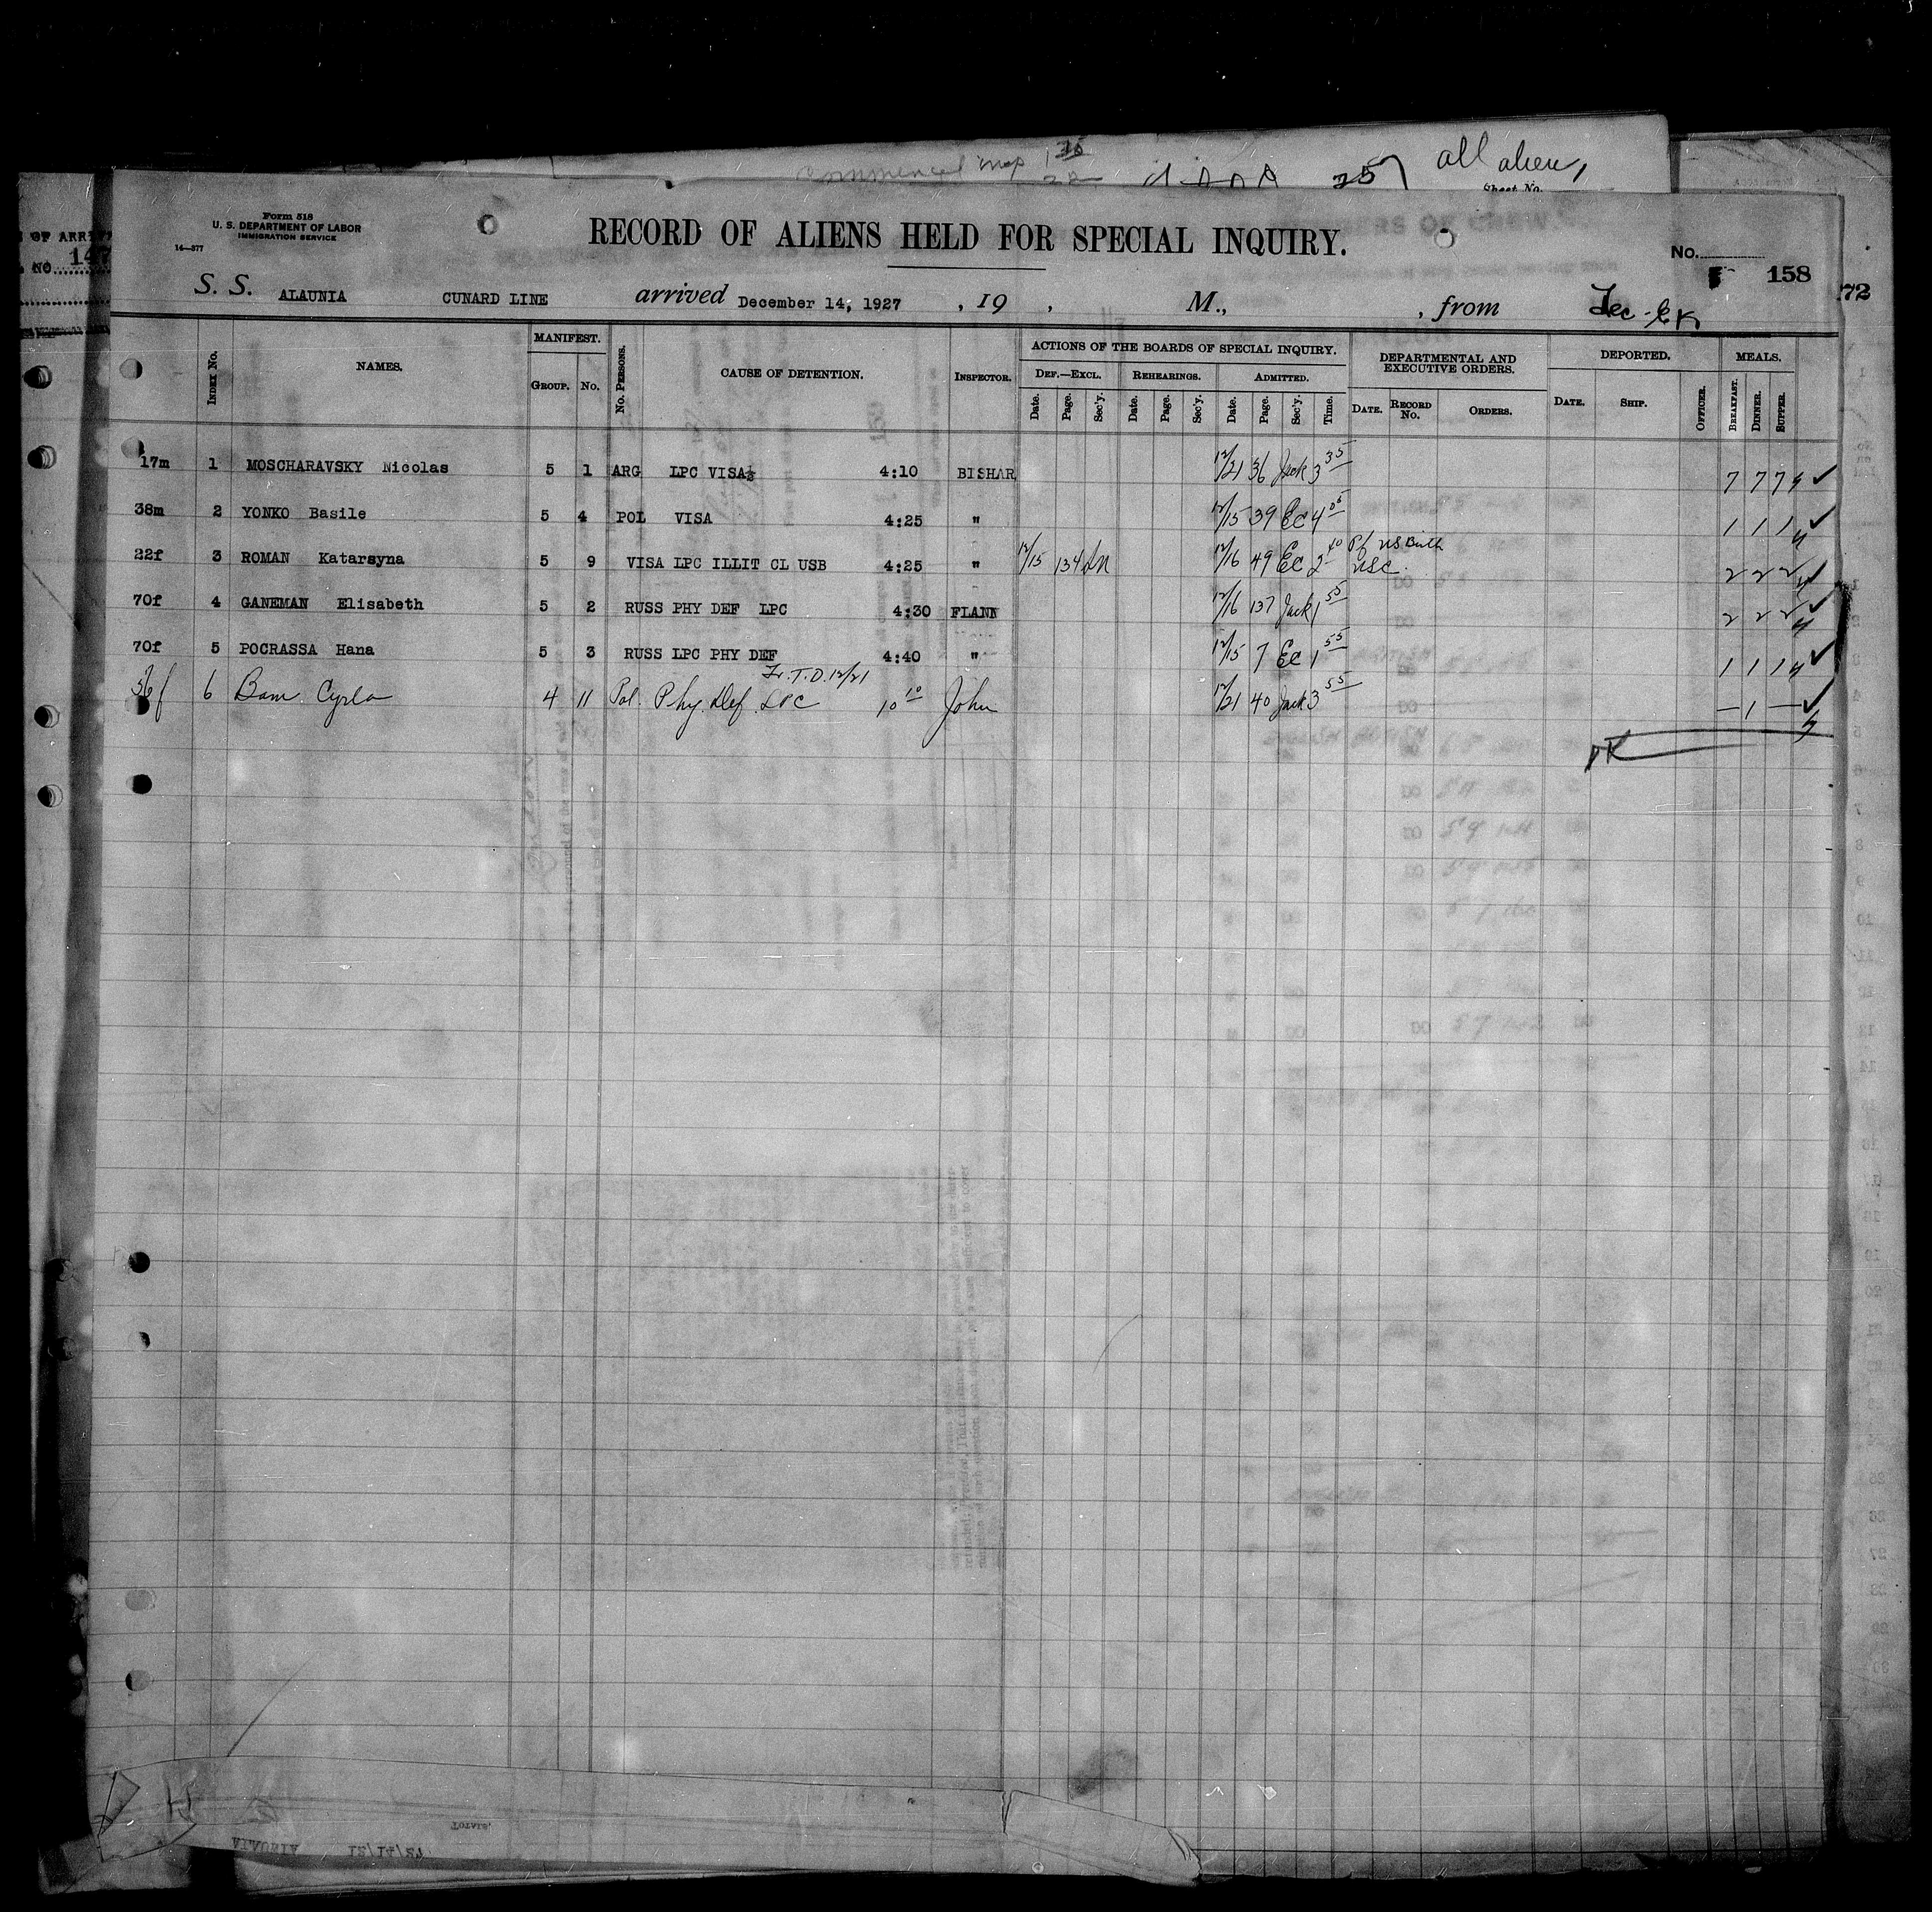 all aliens
Sheet No.
257
Form 518
U. S. DEPARTMENT OF LABOR
IMMIGRATION SERVICE
14—577
RECORD OF ALIENS HELD FOR SPECIAL INQUIRY.
No.
158
147
72
S. S. ALAUNIA CUNARD LINE arrived December 14, 1927 , 19 , M., , from
Index No. NAMES. MANIFEST. Group. No. No. Persons. CAUSE OF DETENTION. Inspector. ACTIONS OF THE BOARDS OF SPECIAL INQUIRY. Def.—Excl. Date. Page. Sec'y. Rehearings. Date. Page. Sec'y. Admitted. Date. Page. Sec'y. Time. DEPARTMENTAL AND EXECUTIVE ORDERS. Date. Record No. Orders. DEPORTED. Date. Ship. Officer. MEALS. Breakfast. Dinner. Supper.
17m 1 MOSCHARAVSKY Nicolas 5 1 ARG LPC VISA 4:10 BISHAR 12/21 36 Jack 3 35 7 7 7
38m 2 YONKO Basile 5 4 POL VISA 4:25 " 12/15 39 EC 4 05 1 1 1
22f 3 ROMAN Katarsyna 5 9 VISA LPC ILLIT CL USB 4:25 " 12/15 134 12/16 49 EC 2 40 Pf US Birth USC. 2 2 2
70f 4 GANEMAN Elisabeth 5 2 RUSS PHY DEF LPC 4:30 FLANN 12/16 137 Jack 1 55 2 2 2
70f 5 POCRASSA Hana 5 3 RUSS LPC PHY DEF 4:40 " 12/15 7 EC 1 55 1 1 1
F.T.D. 12/21
56f 6 Bam Cyrla 4 11 Pol. Phy. Def. LPC 10 10 John 12/21 40 Jack 3 55 — 1 —